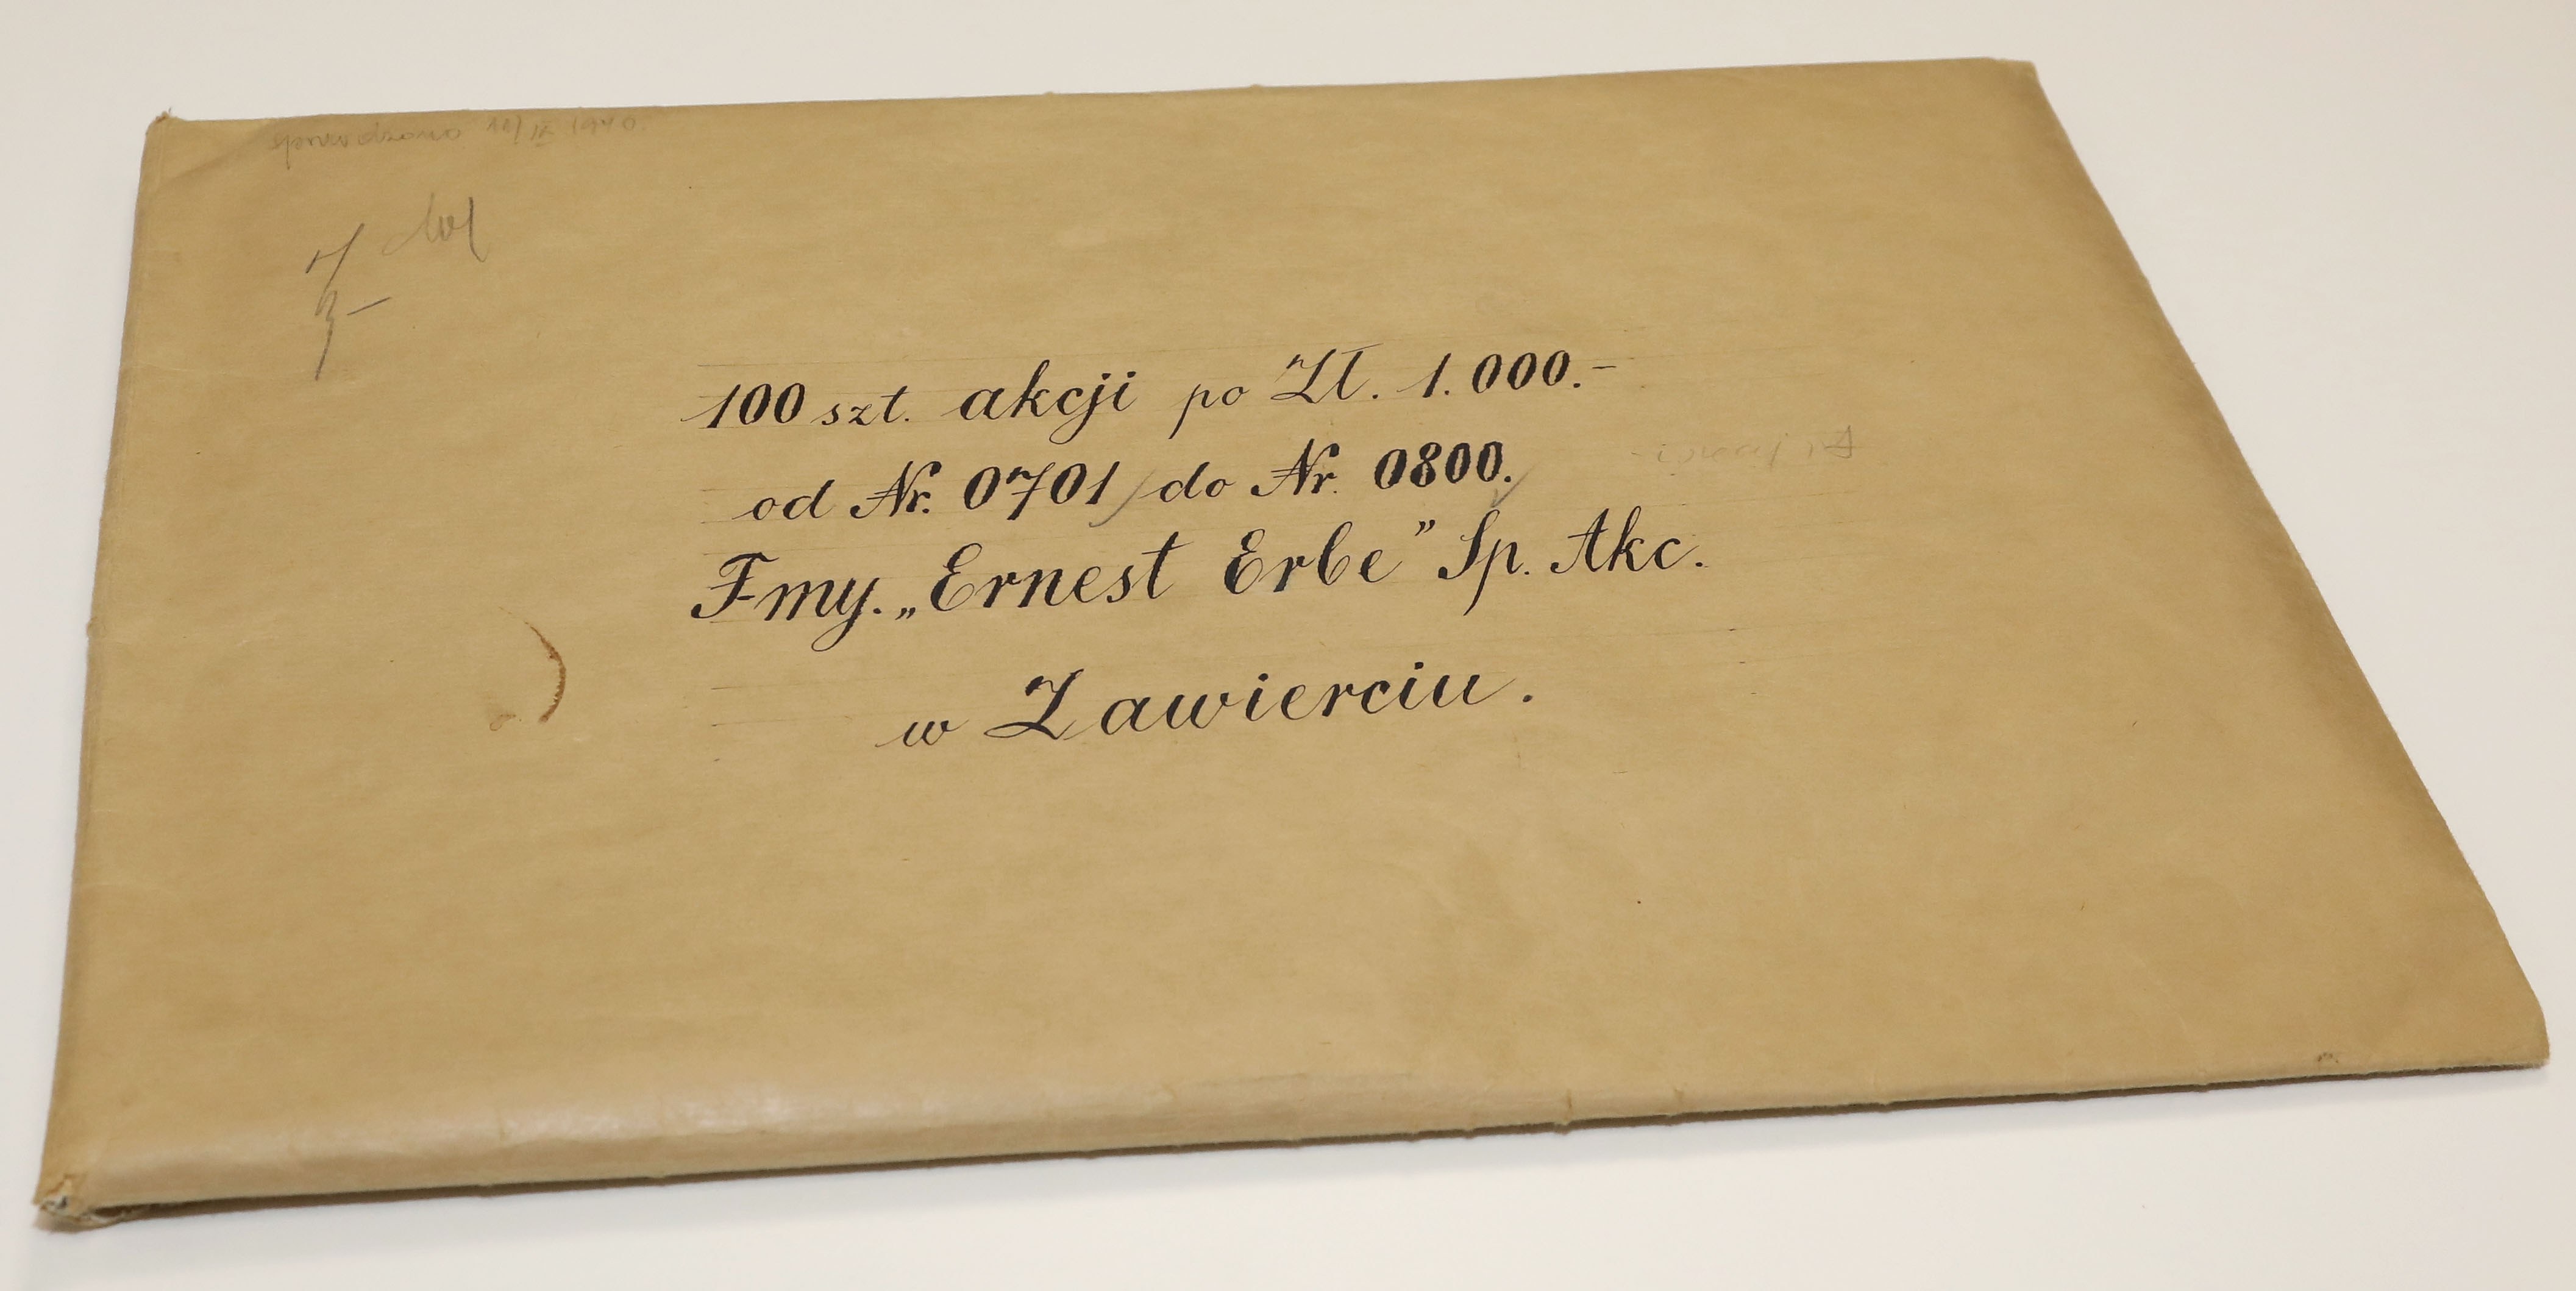 sprawdzono 10/IX 1940.
100 szt. akcji po Zł. 1.000.-
od Nr. 0701 do Nr. 0800.
Fmy. „Ernest Erbe” Sp. Akc.
w Zawierciu.